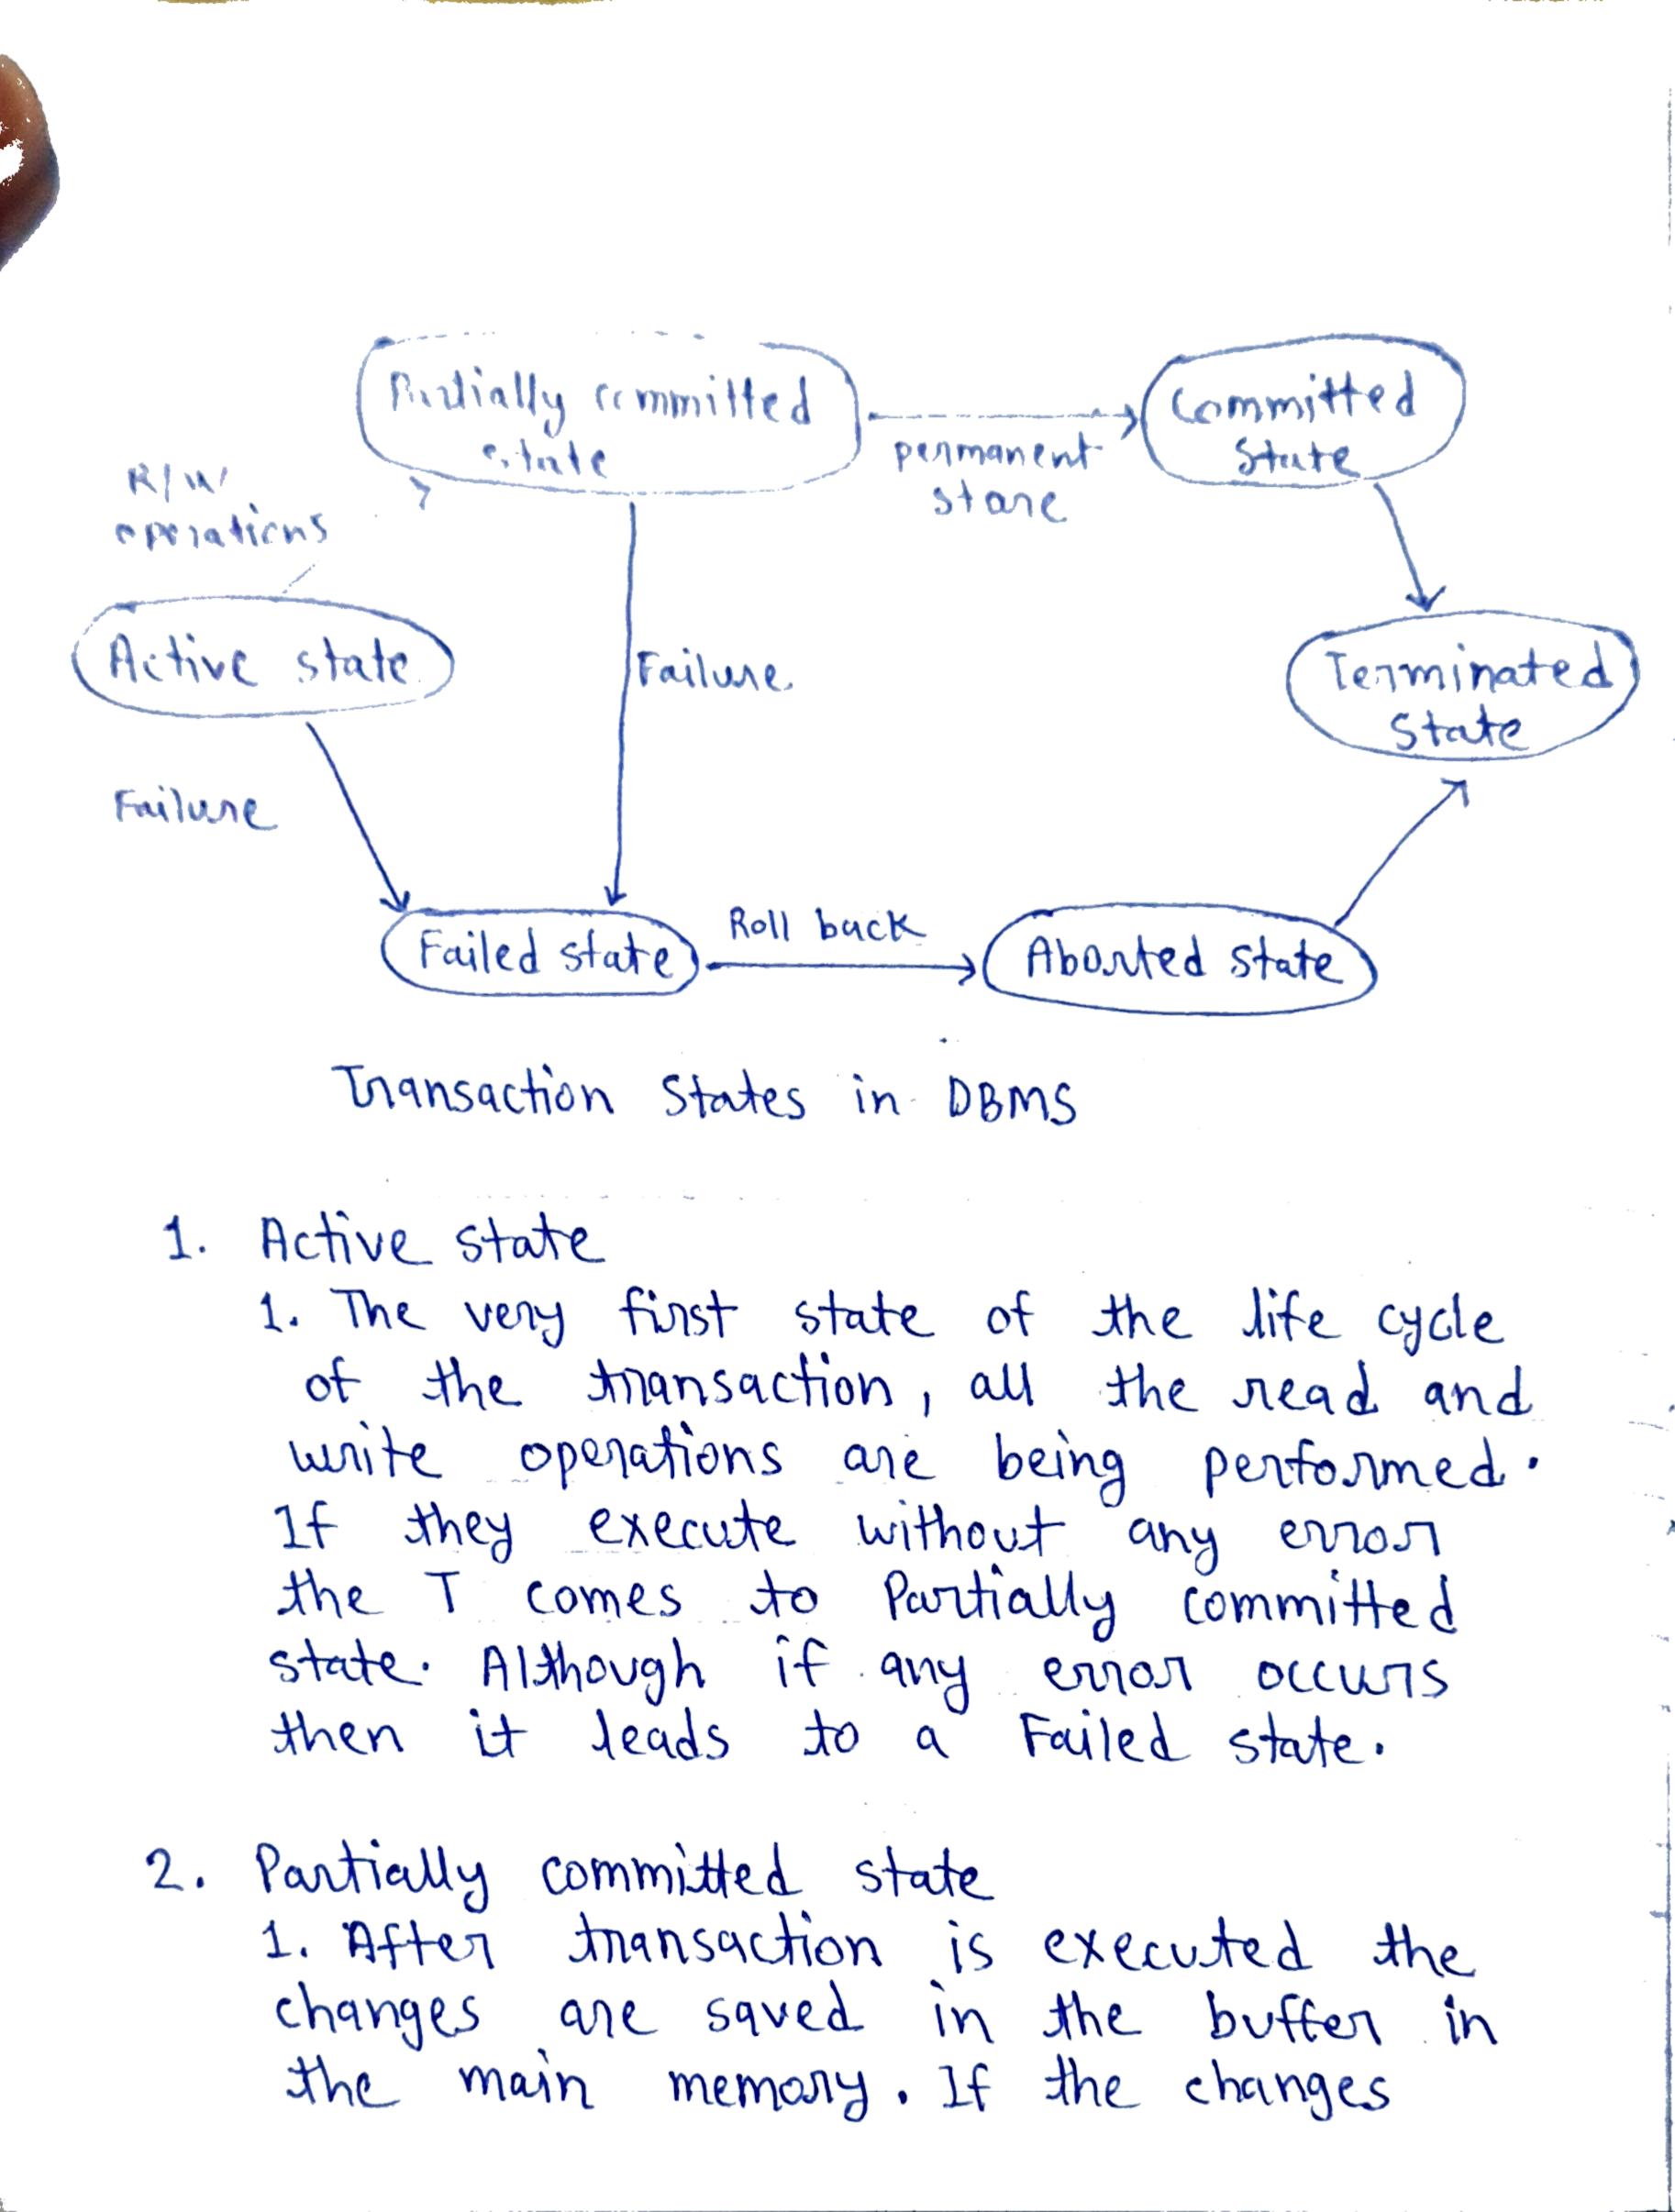 Partially committed
state
Committed
State
permanent
store
R/W
operations
Active state
Failure
Terminated
State
Failure
Failed state
Roll back
Aborted state
Transaction States in DBMS
1. Active state
1. The very first state of the life cycle
of the transaction, all the read and
write operations are being performed.
If they execute without any error
the T comes to Partially committed
state. Although if any error occurs
then it leads to a Failed state.
2. Partially committed state
1. After transaction is executed the
changes are saved in the buffer in
the main memory. If the changes